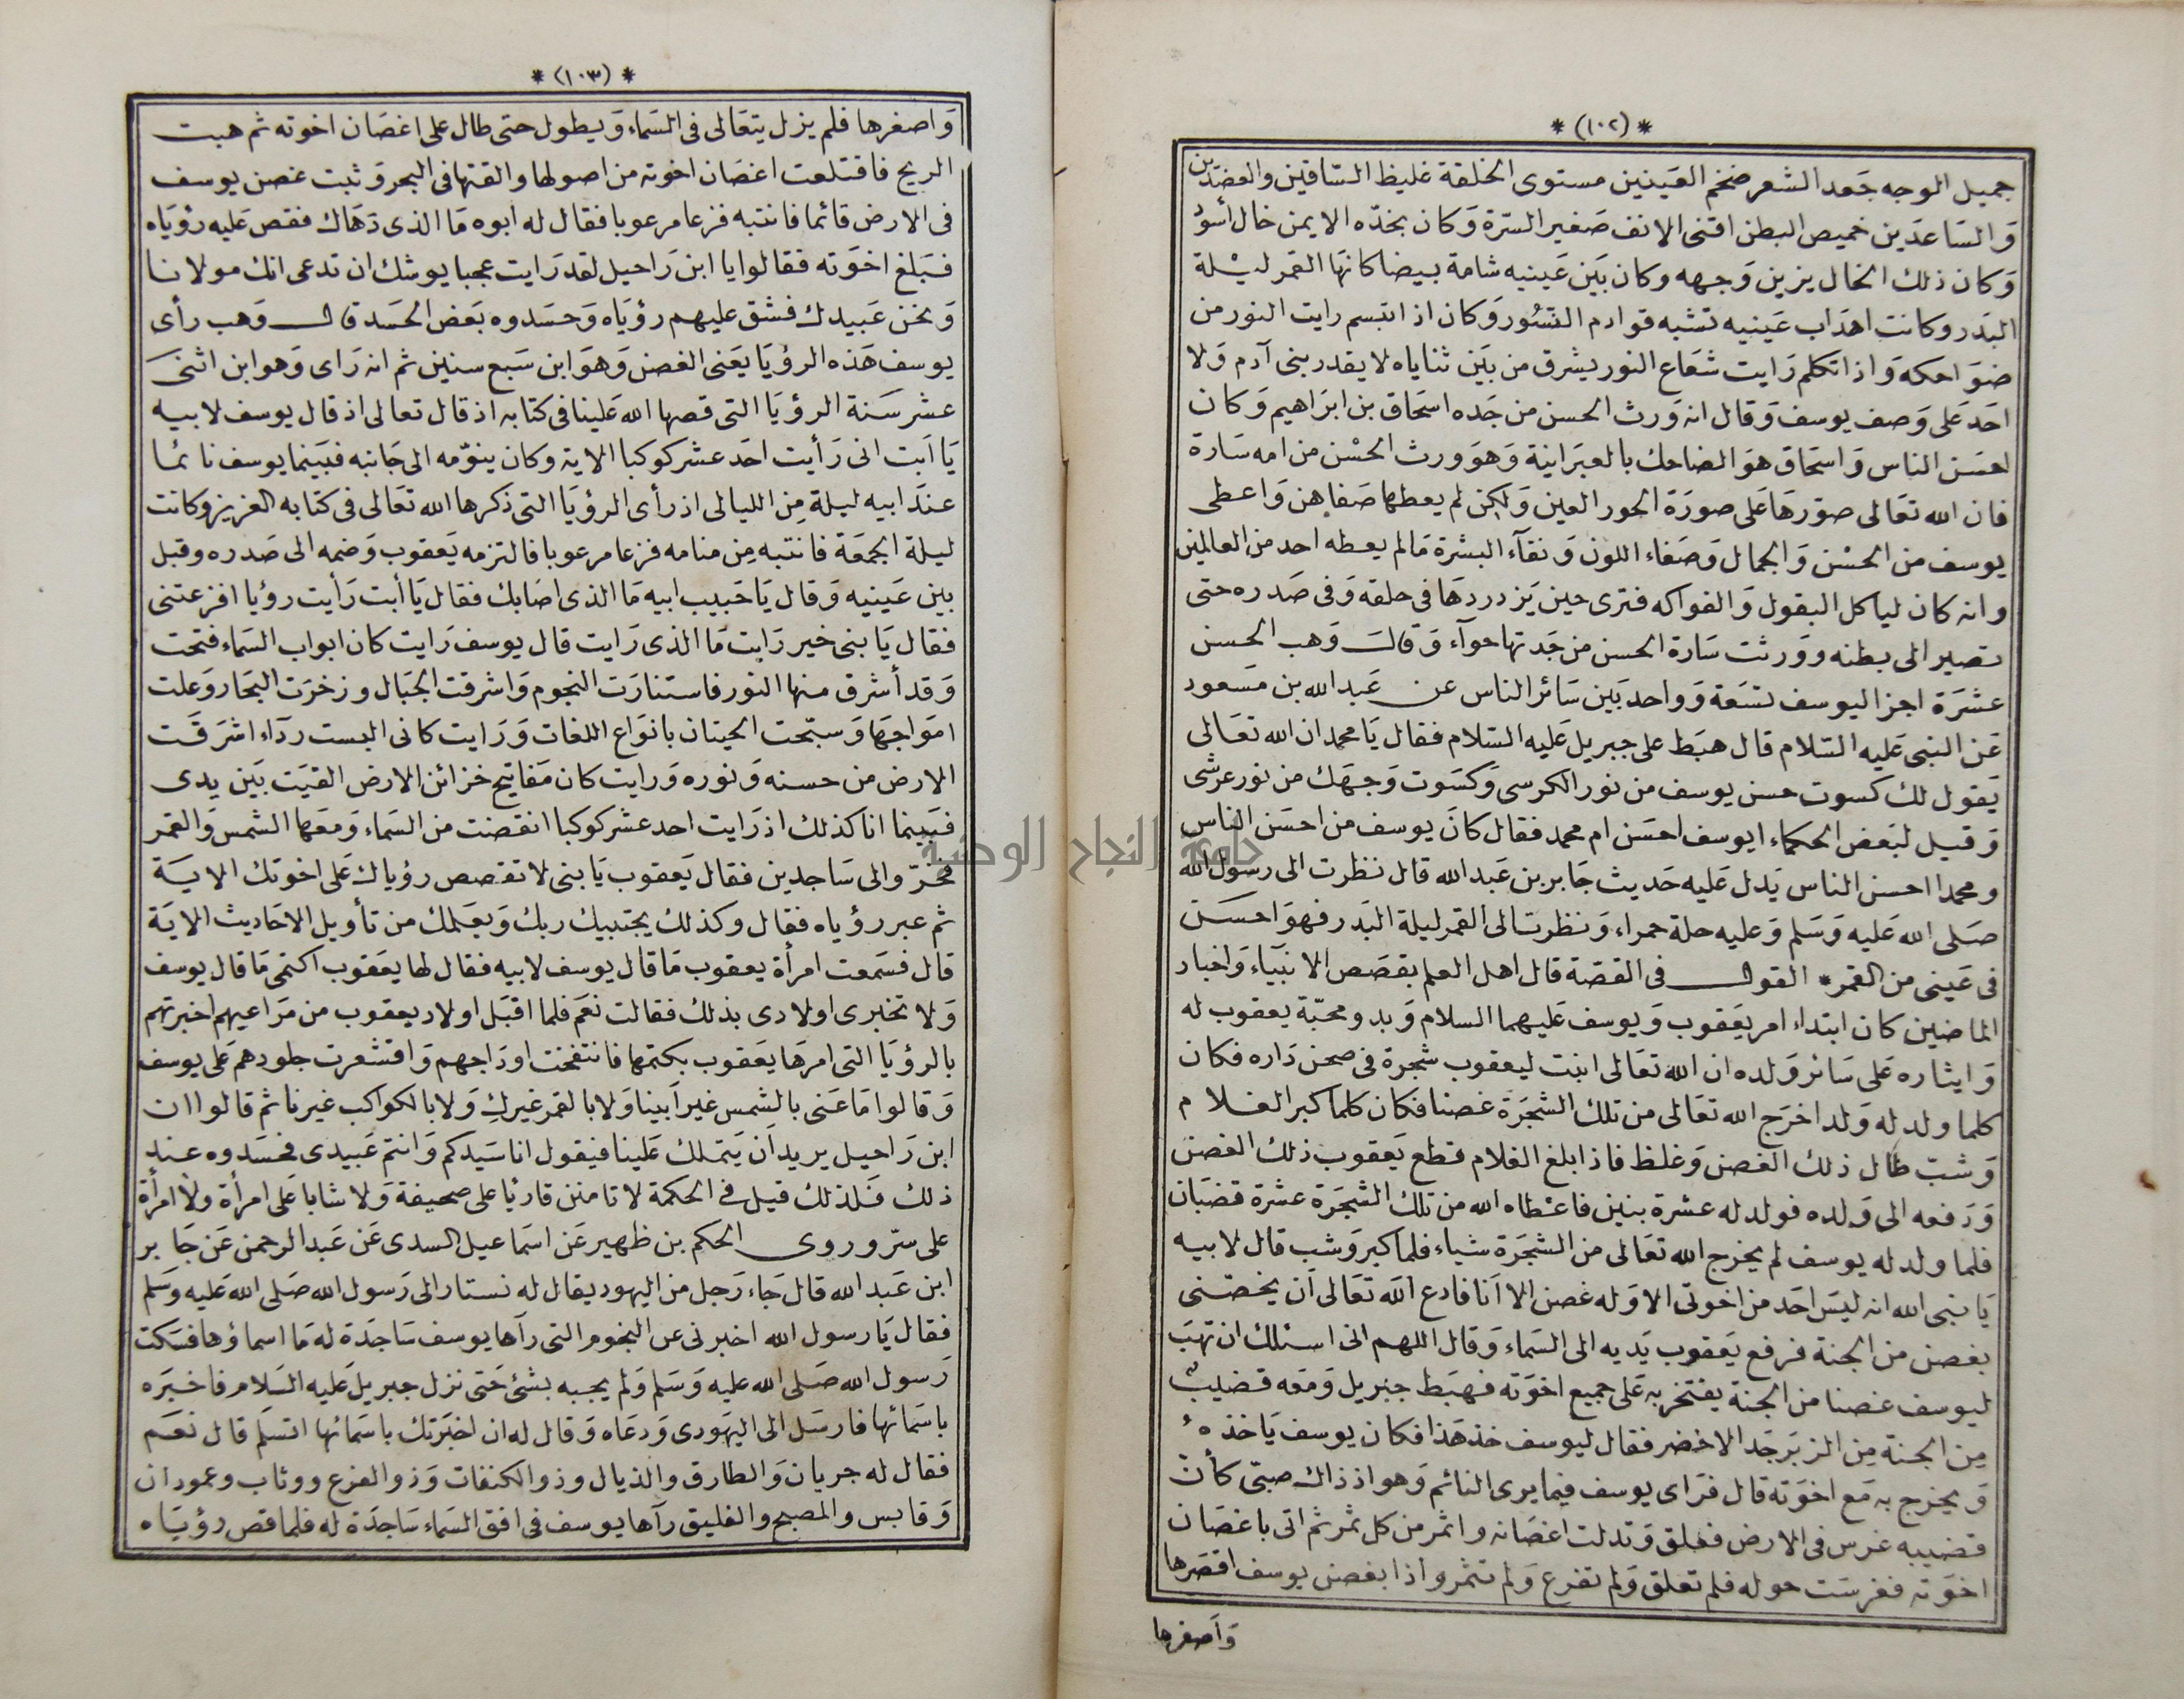 * (١٠٢) *
جميل الوجه جَعد الشعر ضخم العَينين مستوى الخلقة غليظ السّاقين والعضدين
وَالسَاعدَين خميص البطن اقنى الانف صَغير السّرة وَكان بخدّه الايمن خال أسوَد
وَكان ذلك الخال يزين وَجهه وكان بَين عَينيه شامة بيضا كانهَا القمر ليْلة
البَدر وكانت اهدَاب عَينيه تشبه قوادم النسُور وَكان اذ ابتسم رايت النور من
ضوَاحكه وَاذا تكلم رَايت شعَاع النور يشرق من بَين ثناياه لا يقدر بنى آدم وَلا
احَد عَلى وَصف يوسف وَقال انه وَرث الحسن من جَده اسحَاق بن ابرَاهيم وَكان
احسَن الناس وَاسحَاق هوَ الضاحك بالعبرَانية وَهوَ ورث الحسْن من امه سَارة
فان الله تعَالى صوّرهَا عَلى صورَة الحور العين وَلكن لم يعطها صَفاهن وَاعطى
يوسف من الحسْن وَالجمال وَصَفاء اللون وَنقآء البشرة مَالم يعطه احد من العالمين
وانه كان لياكل البقول وَالفواكه فترى حين يَزدردهَا فى حلقه وَفى صَدره حتى
تصير الى بطنه وورثت سَارة الحسن من جَدتها حوآء وَقالَ وَهب الحسن
عشرَة اجزا ليوسف تسعَة وَواحد بَين سَائر الناس عن عَبد الله بن مَسعود
عَن النبى عَليه السّلام قال هبَط على جبريل عَليه السّلام فقال يَا محمد ان الله تعَالى
يَقول لك كسوت حسن يوسف من نور الكرسى وَكسَوت وَجهَك من نور عرشى
وَقيل لبَعض الحكماء ايوسف احسَن ام محمد فقال كانَ يوسف من احسَن الناس
ومحمدا احسن الناس يَدل عَليه حَديث جَابر بن عَبد الله قال نظرت الى رسول الله
صَلى الله عَليه وَسَلم وَعليه حلة حمراء وَنظرت الى القمر ليلة البَدر فهوَ احسَن
فى عَينى من القمر * القول فى القصّة قال اهل العلم بقصَص الانبيَاء وَاخبار
الماضين كان ابتداء امر يَعقوب وَيوسف عَليهما السلام وَبدو محبّة يعقوب له
وَايثاره عَلى سَائر وَلده ان الله تعَالى انبت ليعقوب شجرة فى صحن دَاره فكان
كلما ولد له وَلد اخرَج الله تعَالى من تلك الشجَرَة غصنا فكان كلما كبر الغلام
وَشب طال ذلك الغصن وَغلظ فاذا بلغ الغلام قطع يَعقوب ذلك الغصن
وَدَفعه الى وَلده فولد له عشرة بنين فاعْطاه الله من تلك الشجَرَة عشرة قضبَان
فلما ولد له يوسف لم يخرج الله تعَالى من الشجَرَة شياء فلما كبر وَشب قال لابيه
يَا نبى الله انه ليسَ احَد من اخوتى الا وَله غصن الا اَنا فادع الله تعَالى اَن يخصّنى
بغصن من الجنة فرفع يَعقوب يَديه الى السَماء وَقال اللهم انى اسئلك ان تهَبَ
ليوسف غصنا من الجنة يفتخر به عَلى جميع اخوَته فهبَط جبريل وَمَعه قضيب
مِن الجنة مِن الزبَرجَد الاخضر فقال ليوسف خذ هَذا فكان يوسف يَاخذهُ
وَيخرج به مَع اخوَته قال فرَاى يوسف فيما يرى النائم وَهو اذ ذاك صبىّ كأنّ
قضيبه غرس فى الارض فعلق وَتدلت اغصَانه واثمر من كل ثمر ثم اتى باغصَان
اخوَته فغرسَت حوله فلم تعلق وَلم تفرع وَلم تثمر واذا بغصن يوسف اقصَرها
وَاَصغرها
* (١٠٣) *
وَاصغرها فلم يزل يتعَالى فى السَماء وَيطول حتى طال على اغصَان اخوته ثم هبت
الريح فاقتلعت اغصَان اخوته من اصولها والقتها فى البحر وَثبت غصن يوسف
فى الارض قائما فانتبه فزعا مرعوبا فقال له ابوه مَا الذى دَهَاك فقص عَليه رؤيَاه
فبَلغ اخوَته فقالوا يا ابن رَاحيل لقد رَايت عجبا يوشك ان تدعى انك مولانا
وَنحن عَبيدك فشق عليهم رؤيَاه وَحسَدوه بَعض الحسَد قال وَهب رأى
يوسف هَذه الرؤيَا يعَنى الغصن وَهوَ ابن سَبع سنين ثم انه رَاى وَهو ابن اثنى
عشر سَنة الرؤيَا التى قصها الله عَلينا فى كتابه اذ قال تعالى اذ قال يوسف لابيه
يَا اَبت انى رَأيت احَد عشر كوكبا الاية وكان ينوّمه الى جَانبه فبَينما يوسف نائما
عندَ ابيه ليلة مِن الليالى اذ رأى الرؤيَا التى ذكرها الله تعَالى فى كتابه العزيز وكانت
ليلة الجمعَة فانتبه مِن منامه فزعا مرعوبا فالتزمه يَعقوب وَضمه الى صَدره وقبل
بين عَينيه وَقال يَا حَبيب ابيه مَا الذى اصَابك فقال يَا أبت رَأيت رؤيا افزعتنى
فقال يَا بنى خير رَايت مَا الذى رَايت قال يوسف رَايت كان ابواب السَماء فتحت
وَقد أشرق منها النور فاستنارَت النجوم وَاشرقت الجبَال وزخرَت البحَار وَعلت
امَوَاجهَا وَسبّحت الحيتان بانوَاع اللغات وَرَايت كانى البست ردَآء اشرَقَت
الارض من حسنه وَنوره وَرايت كان مَفاتيح خزائن الارض القيَت بَين يدى
فبَينما انا كذلك اذ رَايت احد عشر كوكبا انقضت من السَماء وَمَعها الشمس وَالقمر
فخرّوالى سَاجدين فقال يَعقوب يَا بنى لا تقصص رؤياك عَلى اخوتك الايَة
ثم عبر رؤياه فقال وكذلك يجتبيك ربك وَيعَلمك من تأويل الاحَاديث الايَة
قال فسَمعت امرأة يعقوب مَا قال يوسف لابيه فقال لها يعقوب اكتمى مَا قال يوسف
وَلا تخبرى اولادى بذلك فقالت نعَم فلما اقبَل اولاد يعقوب من مَرَاعيهم اخبرتهم
بالرؤيَا التى امرهَا يعَقوب بكتمها فانتفخت اودَاجهم وَاقشعرت جلودهم عَلى يوسف
وَقالوا مَا عَنى بالشمس غير اَبينا وَلا بالقمر غيركِ وَلا بالكواكب غيرنا ثم قالوا ان
ابن رَاحيل يريد اَن يَتملك عَلينا فيقول انا سَيدكم وَانتم عَبيدى فحسَدوه عند
ذلك فلذلك قيل فى الحكمة لا تامنن قارئا على صحيفة وَلا شابا عَلى امرأة ولا امرأة
على سرّ وروى الحكم بن ظهير عَن اسمَاعيل السدى عَن عَبد الرحمن عَن جَابر
ابن عَبد الله قال جَاء رَجل من اليهود يقال له نستار الى رَسول الله صَلى الله عَليه وَسَلم
فقال يَا رسول الله اخبرنى عن النجوم التى رآها يوسف سَاجدَة له مَا اسماؤها فسَكت
رَسول الله صَلى الله عليه وَسَلم وَلم يجبه بشئ حَتى نزل جبريل عَليه السَلام فاخبَره
باسمَائها فارسَل الى اليهَودى وَدعَاه وَقال له ان اخبَرتك باسمَائها اتسلَم قال نعَم
فقال له جريان وَالطارق والذيال وذو الكنفات وَذو الفرع ووثاب وعمودان
وَقابس والمصبح والفليق رآها يوسف فى افق السَماء سَاجدَة له فلما قص رؤيَاه
جامعة النجاح الوطنية